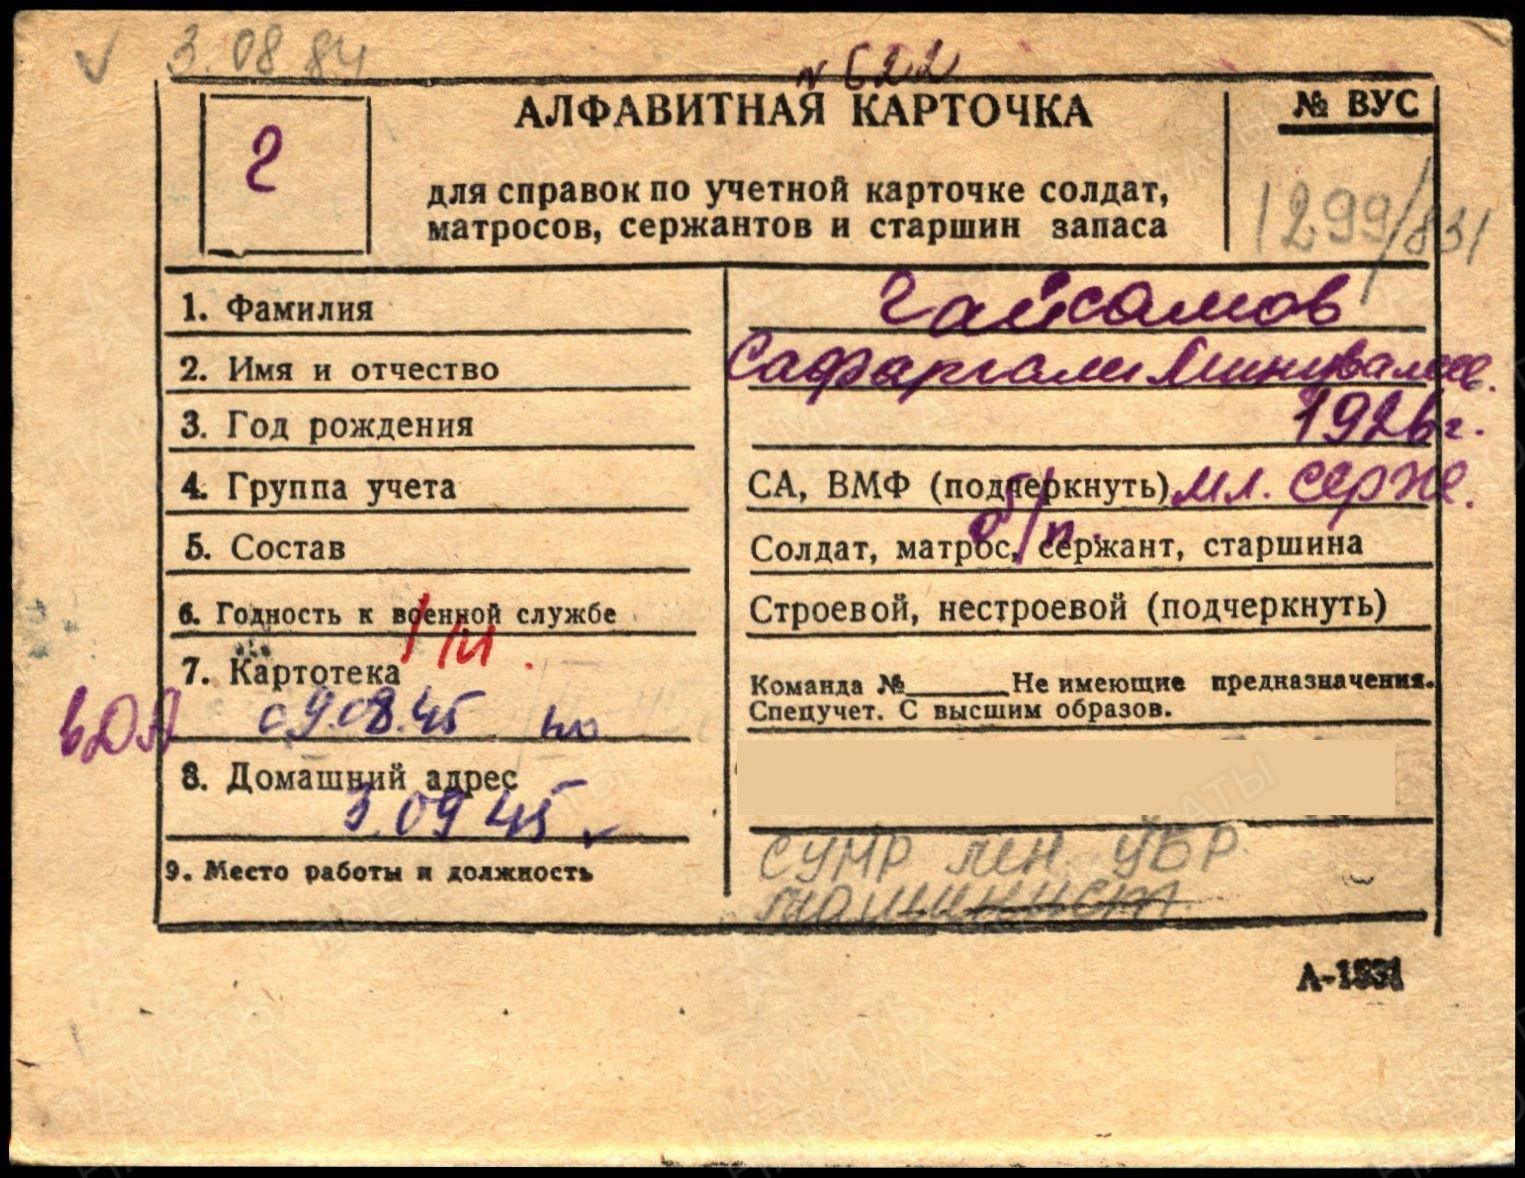 3.08.84
№ 622
2
АЛФАВИТНАЯ КАРТОЧКА
№ ВУС
для справок по учетной карточке солдат,
матросов, сержантов и старшин запаса
1299/831
1. Фамилия
Гайсамов
2. Имя и отчество
Сафаргали Минивалеев.
3. Год рождения
1926г.
4. Группа учета
СА, ВМФ (подчеркнуть) мл. серж.
об/п.
5. Состав
Солдат, матрос, сержант, старшина
6. Годность к военной службе
Строевой, нестроевой (подчеркнуть)
7. Картотека
Команда №______Не имеющие предназначения.
Спецучет. С высшим образов.
с 9.08.45 по
8. Домашний адрес
3.09 45
9. Место работы и должность
СУМР
машинист
А-1931
ПАМЯТЬ НАРОДА